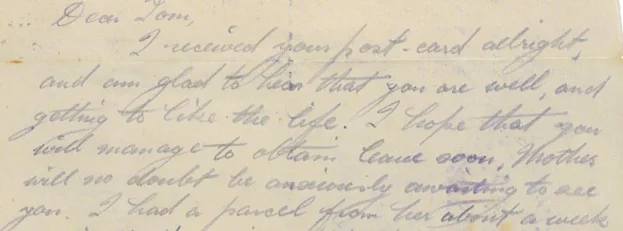 Dear Tom,
I received your post-card allright,
and am glad to hear that you are well, and
getting to like the life. I hope that you
will manage to obtain leave soon, Mother
will no doubt be anxiously awaiting to see
you. I had a parcel from her about a week